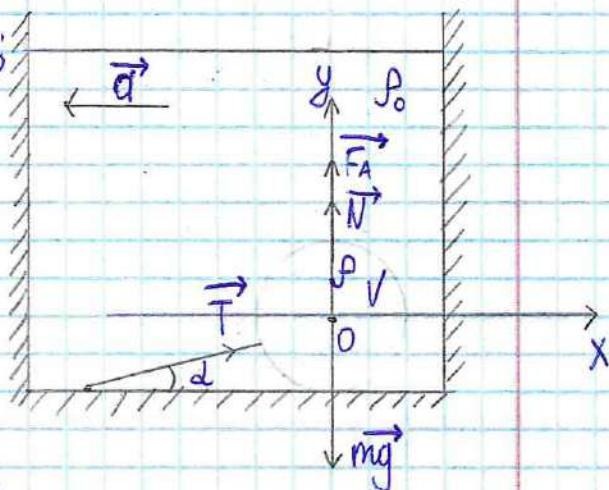 a
y ρ₀
F_A
N
ρ V
T
O
X
α
mg